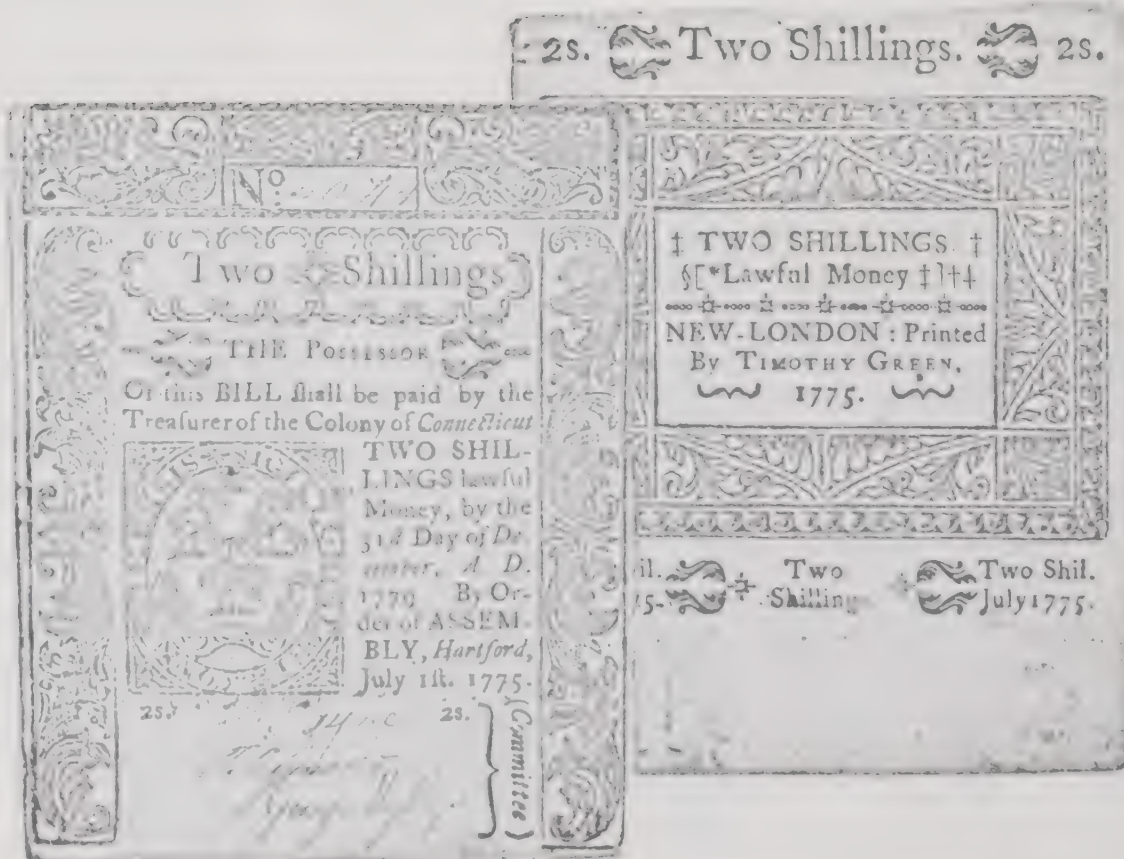 No.
Two Shillings
THE POSSESSOR
Of this BILL ſhall be paid by the
Treaſurer of the Colony of Connecticut
TWO SHIL-
LINGS lawful
Money, by the
31d Day of De-
cember, A. D.
1779 By Or-
der of ASSEM-
BLY, Hartford,
July 1ſt. 1775.
2s. 2s.
(Committee)
2s. Two Shillings. 2s.
‡ TWO SHILLINGS. †
§[*Lawful Money ‡]†‡
NEW-LONDON : Printed
By TIMOTHY GREEN,
1775.
il. Two Two Shil.
75. Shilling July 1775.